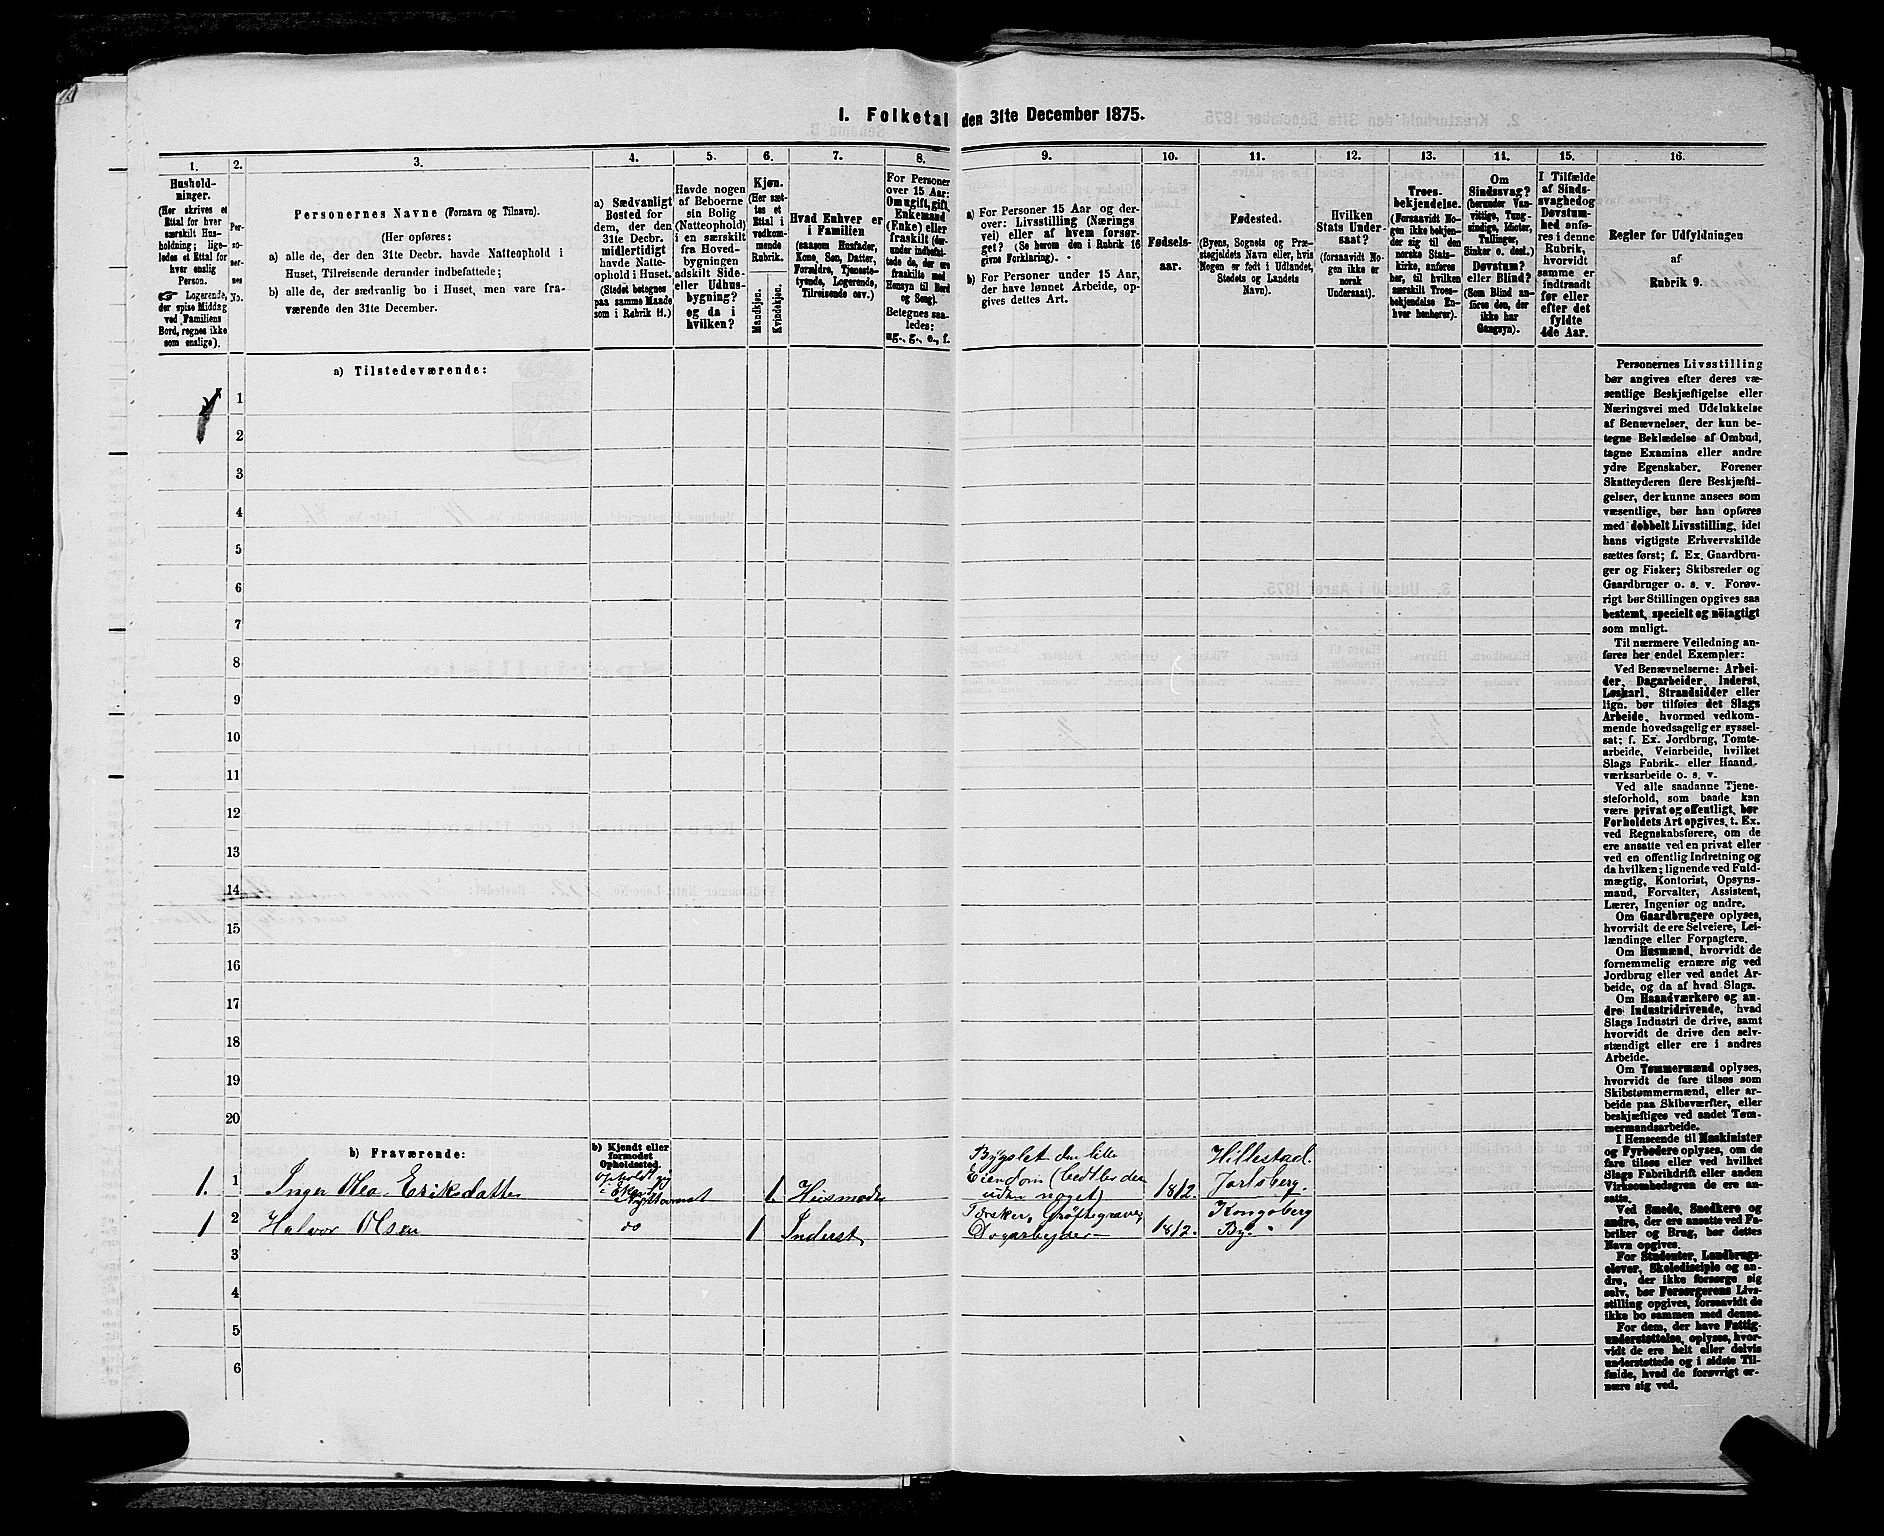 1. Folketal den 31te December 1875.
1.
2.
3.
4.
5.
6.
7.
8.
9.
10.
11.
12.
13.
14.
15.
16.
Hushold-
ninger.
(Her skrives et
Ettal for hver
særskilt Hus-
holdning; lige-
ledes et Ettal for
hver enslig
Person.
☞ Logerende,
der spise Middag
ved Familiens
Bord, regnes ikke
som enslige).
Per-
so-
ner-
nes
No.
Personernes Navne (Fornavn og Tilnavn).
(Her opføres:
a) alle de, der den 31te Decbr. havde Natteophold i
Huset, Tilreisende derunder indbefattede;
b) alle de, der sædvanlig bo i Huset, men vare fra-
værende den 31te December.
a) Sædvanligt
Bosted for
dem, der den
31te Decbr.
midlertidigt
havde Natte-
ophold i Huset.
(Stedet betegnes
paa samme Maade
som i Rubrik 11.)
Havde nogen
af Beboerne
sin Bolig
(Natteophold)
i en særskilt
fra Hoved-
bygningen
adskilt Side-
eller Udhus-
bygning?
og da i
hvilken?
Kjøn.
(Her sæt-
tes et
Ettal i
vedkom-
mende
Rubrik.
Mandkjøn.
Kvindekjøn.
Hvad Enhver er
i Familien
(saasom Husfader,
Kone, Søn, Datter,
Forældre, Tjeneste-
tyende, Logerende,
Tilreisende osv.)
For Personer
over 15 Aar:
Om ugift, gift,
Enkemand
(Enke) eller
fraskilt (der-
under indbefat-
tede de, der ere
fraskilte med
Hensyn til Bord
og Seng).
Betegnes saa-
ledes:
ug., g., e., f.
a) For Personer 15 Aar og der-
over: Livsstilling (Nærings-
vei) eller af hvem forsør-
get? (Se herom den i Rubrik 16
givne Forklaring).
b) For Personer under 15 Aar,
der have lønnet Arbeide, op-
gives dettes Art.
Fødsels-
aar.
Fødested.
(Byens, Sognets og Præ-
stegjeldets Navn eller, hvis
Nogen er født i Udlandet,
Stedets og Landets
Navn).
Hvilken
Stats Under-
saat?
(forsaavidt No-
gen ikke er
norsk
Undersaat).
Troes-
bekjendelse.
(Forsaavidt No-
gen ikke bekjen-
der sig til den
norske Stats-
kirke, anføres
her, til hvilken
særskilt Troes-
bekjendelse En-
hver henhører).
Om
Sindssvag?
(herunder Van-
vittige, Tung-
sindige, Idioter,
Tullinger,
Sinker o. desl.)
Døvstum?
eller Blind?
(Som Blind an-
føres den, der
ikke har
Gangsyn).
I Tilfælde
af Sinds-
svaghed og
Døvstum-
hed anfø-
res i denne
Rubrik,
hvorvidt
samme er
indtraadt
før eller
efter det
fyldte
4de Aar.
Regler for Udfyldningen
af
Rubrik 9.
a) Tilstedeværende:
1
2
3
4
5
6
7
8
9
10
11
12
13
14
15
16
17
18
19
20
Personernes Livsstilling
bør angives efter deres væ-
sentlige Beskjæftigelse eller
Næringsvei med Udelukkelse
af Benævnelser, der kun be-
tegne Beklædelse af Ombud,
tagne Examina eller andre
ydre Egenskaber. Forener
Skatteyderen flere Beskjæfti-
gelser, der kunne ansees som
væsentlige, bør han opføres
med dobbelt Livsstilling, idet
hans vigtigste Erhvervskilde
sættes først; f. Ex. Gaardbru-
ger og Fisker; Skibsreder og
Gaardbruger o. s. v. Forøv-
rigt bør Stillingen opgives saa
bestemt, specielt og nöiagtigt
som muligt.
Til nærmere Veiledning an-
føres her endel Exempler:
Ved Benævnelserne: Arbei-
der, Dagarbeider, Inderst,
Løskarl, Strandsidder eller
lign. bør tilføies det Slags
Arbeide, hvormed vedkom-
mende hovedsagelig er syssel-
sat; f. Ex. Jordbrug, Tomte-
arbeide, Veiarbeide, hvilket
Slags Fabrik- eller Haand-
værksarbeide o. s. v.
Ved alle saadanne Tjene-
steforhold, som baade kan
være privat og offentligt, bør
Forholdets Art opgives, t. Ex.
ved Regnskabsførere, om de
ere ansatte ved en privat eller
ved en offentlig Indretning og
da hvilken; lignende ved Fuld-
mægtig, Kontorist, Opsyns-
mand, Forvalter, Assistent,
Lærer, Ingeniør og andre.
Om Gaardbrugere oplyses,
hvorvidt de ere Selveiere, Lei-
lændinge eller Forpagtere.
Om Husmænd, hvorvidt de
fornemmelig ernære sig ved
Jordbrug eller ved andet Ar-
beide, og da af hvad Slags.
Om Haandværkere og an-
dre Industridrivende, hvad
Slags Industri de drive, samt
hvorvidt de drive den selv-
stændigt eller ere i andres
Arbeide.
Om Tømmermænd oplyses,
hvorvidt de fare tilsøs som
Skibstømmermænd, eller ar-
beide paa Skibsværfter, eller
beskjæftiges ved andet Tøm-
mermandsarbeide.
I Henseende til Maskinister
og Fyrbødere oplyses, om de
fare tilsøs eller ved hvilket
Slags Fabrikdrift eller anden
Virksomhedsgren de ere an-
satte.
Ved Smede, Snedkere og
andre, der ere ansatte ved Fa-
briker og Brug, bør dettes
Navn opgives.
For Studenter, Landbrugs-
elever, Skoledisciple og an-
dre, der ikke forsørge sig
selv, bør Forsørgerens Livs-
stilling opgives, forsaavidt de
ikke bo sammen med denne.
For dem, der have Fattig-
understøttelse, oplyses, hvor-
vidt de ere helt eller delvis
understøttede og i sidste Til-
fælde, hvad de forøvrigt er-
nære sig ved.
b) Fraværende:
b) Kjendt eller
formodet
Opholdssted.
1. 1 Inger Olea Eriksdatter 1. Husmoder Bygslet den lille Eiendom (bedtler den uden noget) 1812. Hillestad Jarlsberg.
1 2 Halvor Olsen do 1 Inderst Tærsker, Grøftegraver, Dagarbejder 1812. Kongsberg By.
3
4
5
6